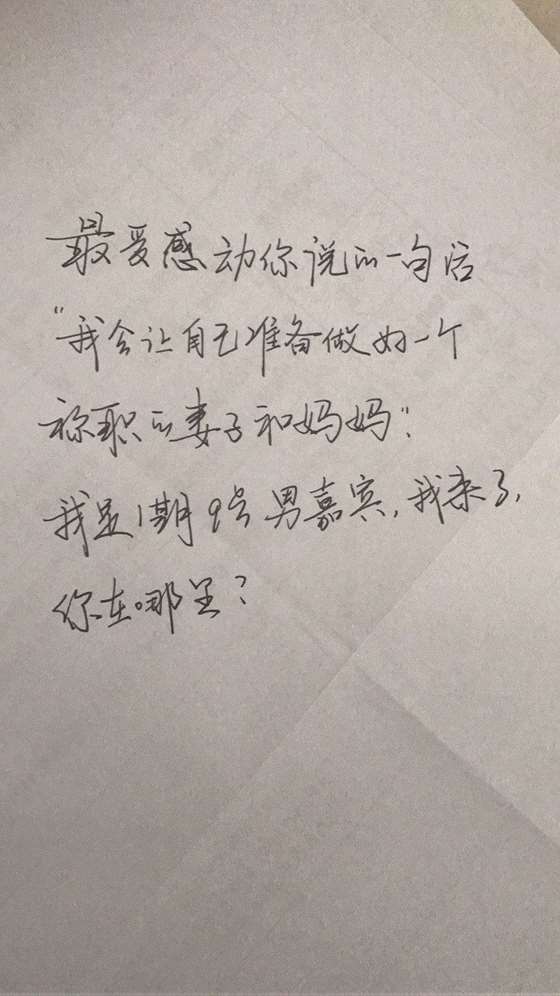 最爱感动你说的一句话
“我会让自己准备做好一个
称职的妻子和妈妈”.
我是1期9号男嘉宾,我来了,
你在哪里?